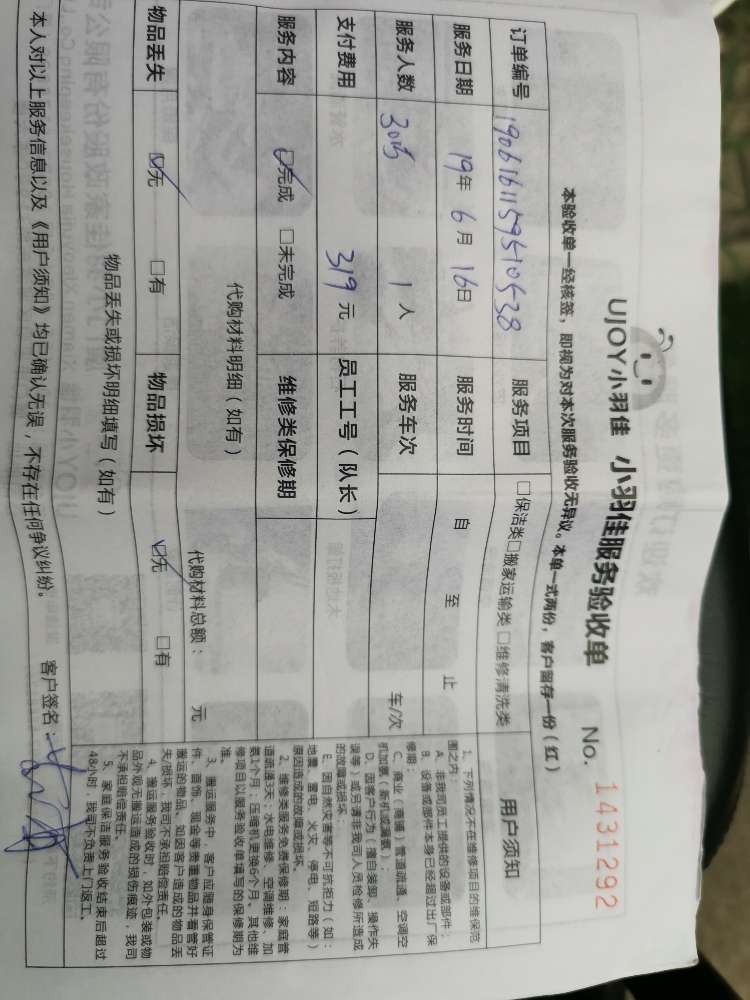 UJOY小羽佳 小羽佳服务验收单 No. 1431292
本验收单一经核签，即视为对本次服务验收无异议。本单一式两份，客户留存一份（红）
订单编号 服务项目 □保洁类□搬家运输类□维修清洗类
服务日期 19年 6月 16日 服务时间 自 至 止
服务人数 1人 服务车次 车/次
支付费用 319元 员工工号（队长）
服务内容 ☑完成 □未完成 维修类保修期
代购材料明细（如有）
代购材料总额： 元
物品丢失 ☑无 □有 物品损坏 ☑无 □有
物品丢失或损坏明细填写（如有）
用户须知
1、下列情况不在维修项目的维保范
围之内：
A、非我司员工提供的设备或部件；
B、设备或部件本身已经超过出厂保
修期；
C、商业（商铺）管道疏通、空调空
机加氨（新机或漏氨）；
D、因客户行为（擅自装卸、操作失
误等）或另请非我司人员检修所造成
的故障或损坏；
E、因自然灾害等不可抗拒力（如：
地震、雷电、火灾、停电、短路等）
原因造成的故障或损坏。
2、维修类服务免费保修期：家庭管
道疏通3天；水电维修、空调维修、加
氨1个月；压缩机更换6个月，其他维
修项目以服务验收单填写的保修期为
准。
3、搬运服务中，客户应随身保管证
件、首饰、现金等贵重物品并看管好
搬运的物品。如因客户造成的物品丢
失/损坏，我司不承担赔偿责任。
4、搬运服务验收时，如外包装或物
品外观无搬运造成的损伤痕迹，我司
不承担赔偿责任。
5、家庭保洁服务验收结束后超过
48小时，我司不负责上门返工。
本人对以上服务信息以及《用户须知》均已确认无误，不存在任何争议纠纷。 客户签名：